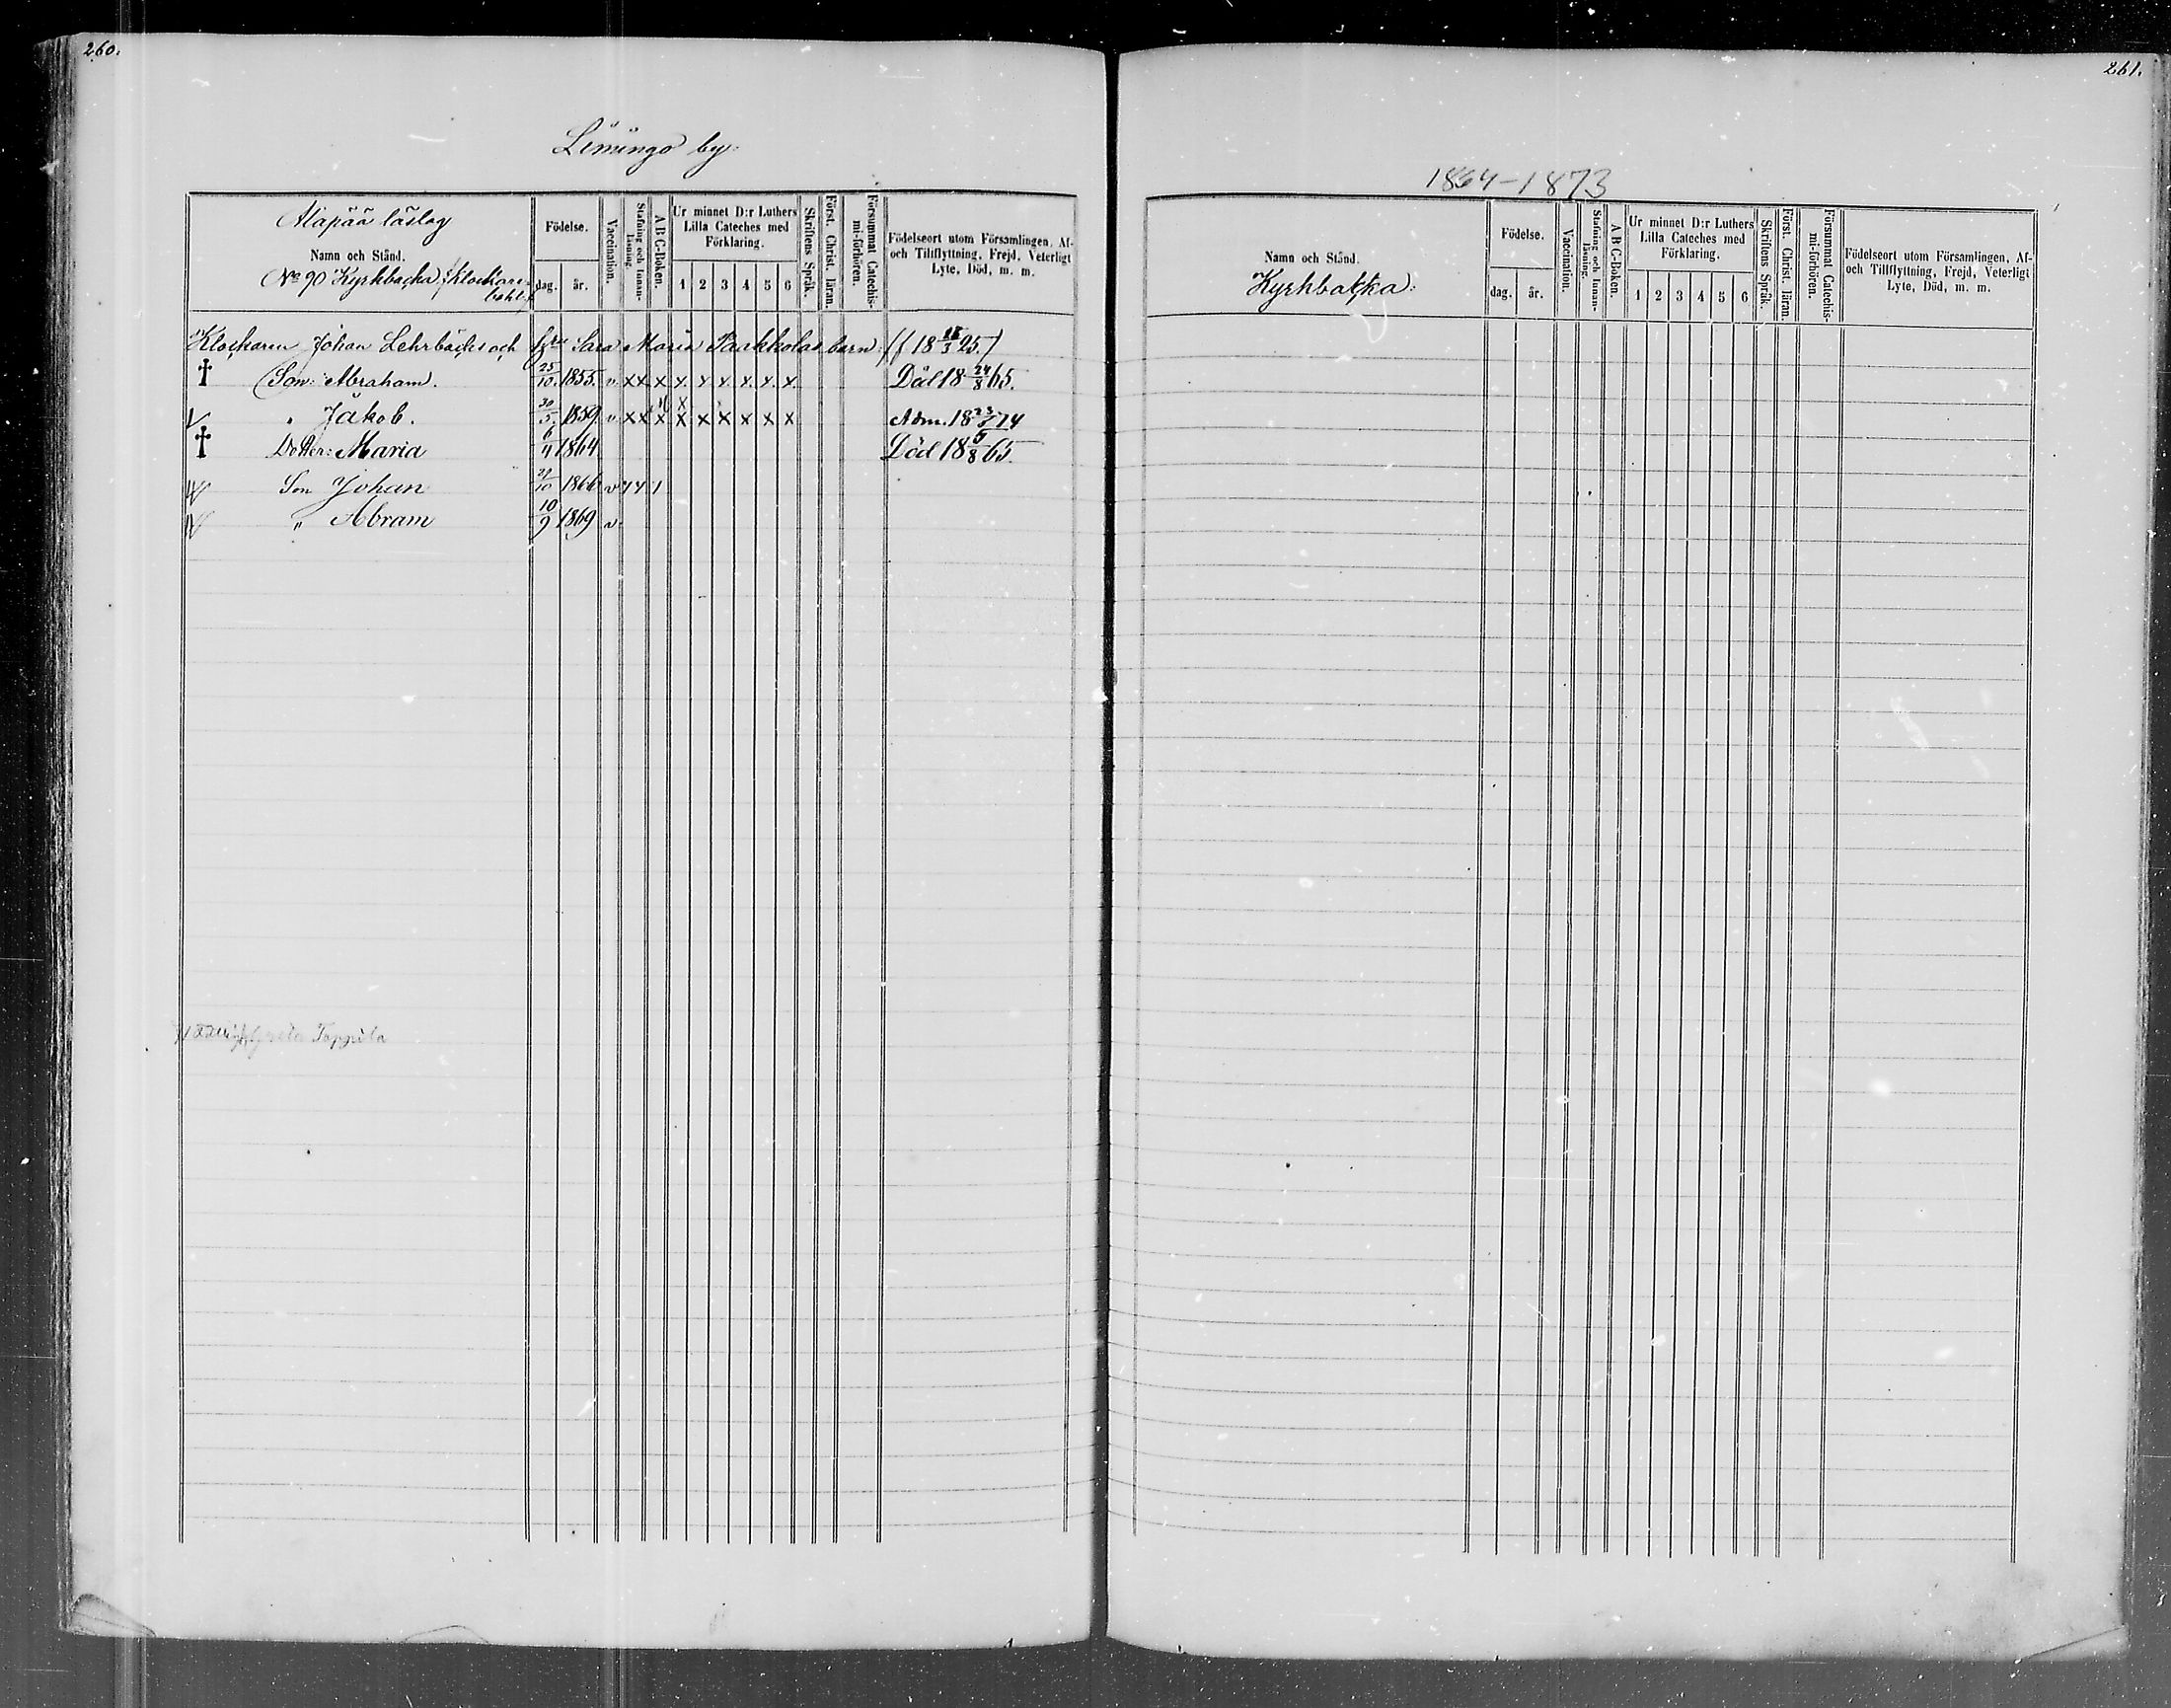 260.
Limingo by.
Alapää läslag
Namn och Stånd.
No 90 Kyrkbacka
Födelse.
dag. år.
Vaccination.
Stafning och Innan-läsning.
A B C-Boken.
Ur minnet D:r Luthers
Lilla Cateches med
Förklaring.
1 2 3 4 5 6
Skriftens Språk.
Först. Christ. läran.
Försummat Catechis-mi-förhören.
Födelseort utom Församlingen, Af-
och Tillflyttning, Frejd, Veterligt
Lyte, Död, m. m.
Klockaren Johan Lehrbäcks och Sara Maria Paakkolas barn. (f 18 3 25.)
† Son: Abraham. 25/10. 1855. v. x x x x. x x. x. x. x. Död 18 24/8 65.
" Jakob. 30/5. 1859. v. x x x x x x x x x Adm. 18 74
† Dotter: Maria 6/11 1864 Död 18 5/8 65.
Son Johan 1866 v 1
" Abram 10/9 1869 v.
Greta Toppila
261.
1864-1873
Namn och Stånd.
Kyrkbacka:
Födelse.
dag. år.
Vaccination.
Stafning och Innan-läsning.
A B C-Boken.
Ur minnet D:r Luthers
Lilla Cateches med
Förklaring.
1 2 3 4 5 6
Skriftens Språk.
Först. Christ. läran.
Försummat Catechis-mi-förhören.
Födelseort utom Församlingen, Af-
och Tillflyttning, Frejd, Veterligt
Lyte, Död, m. m.